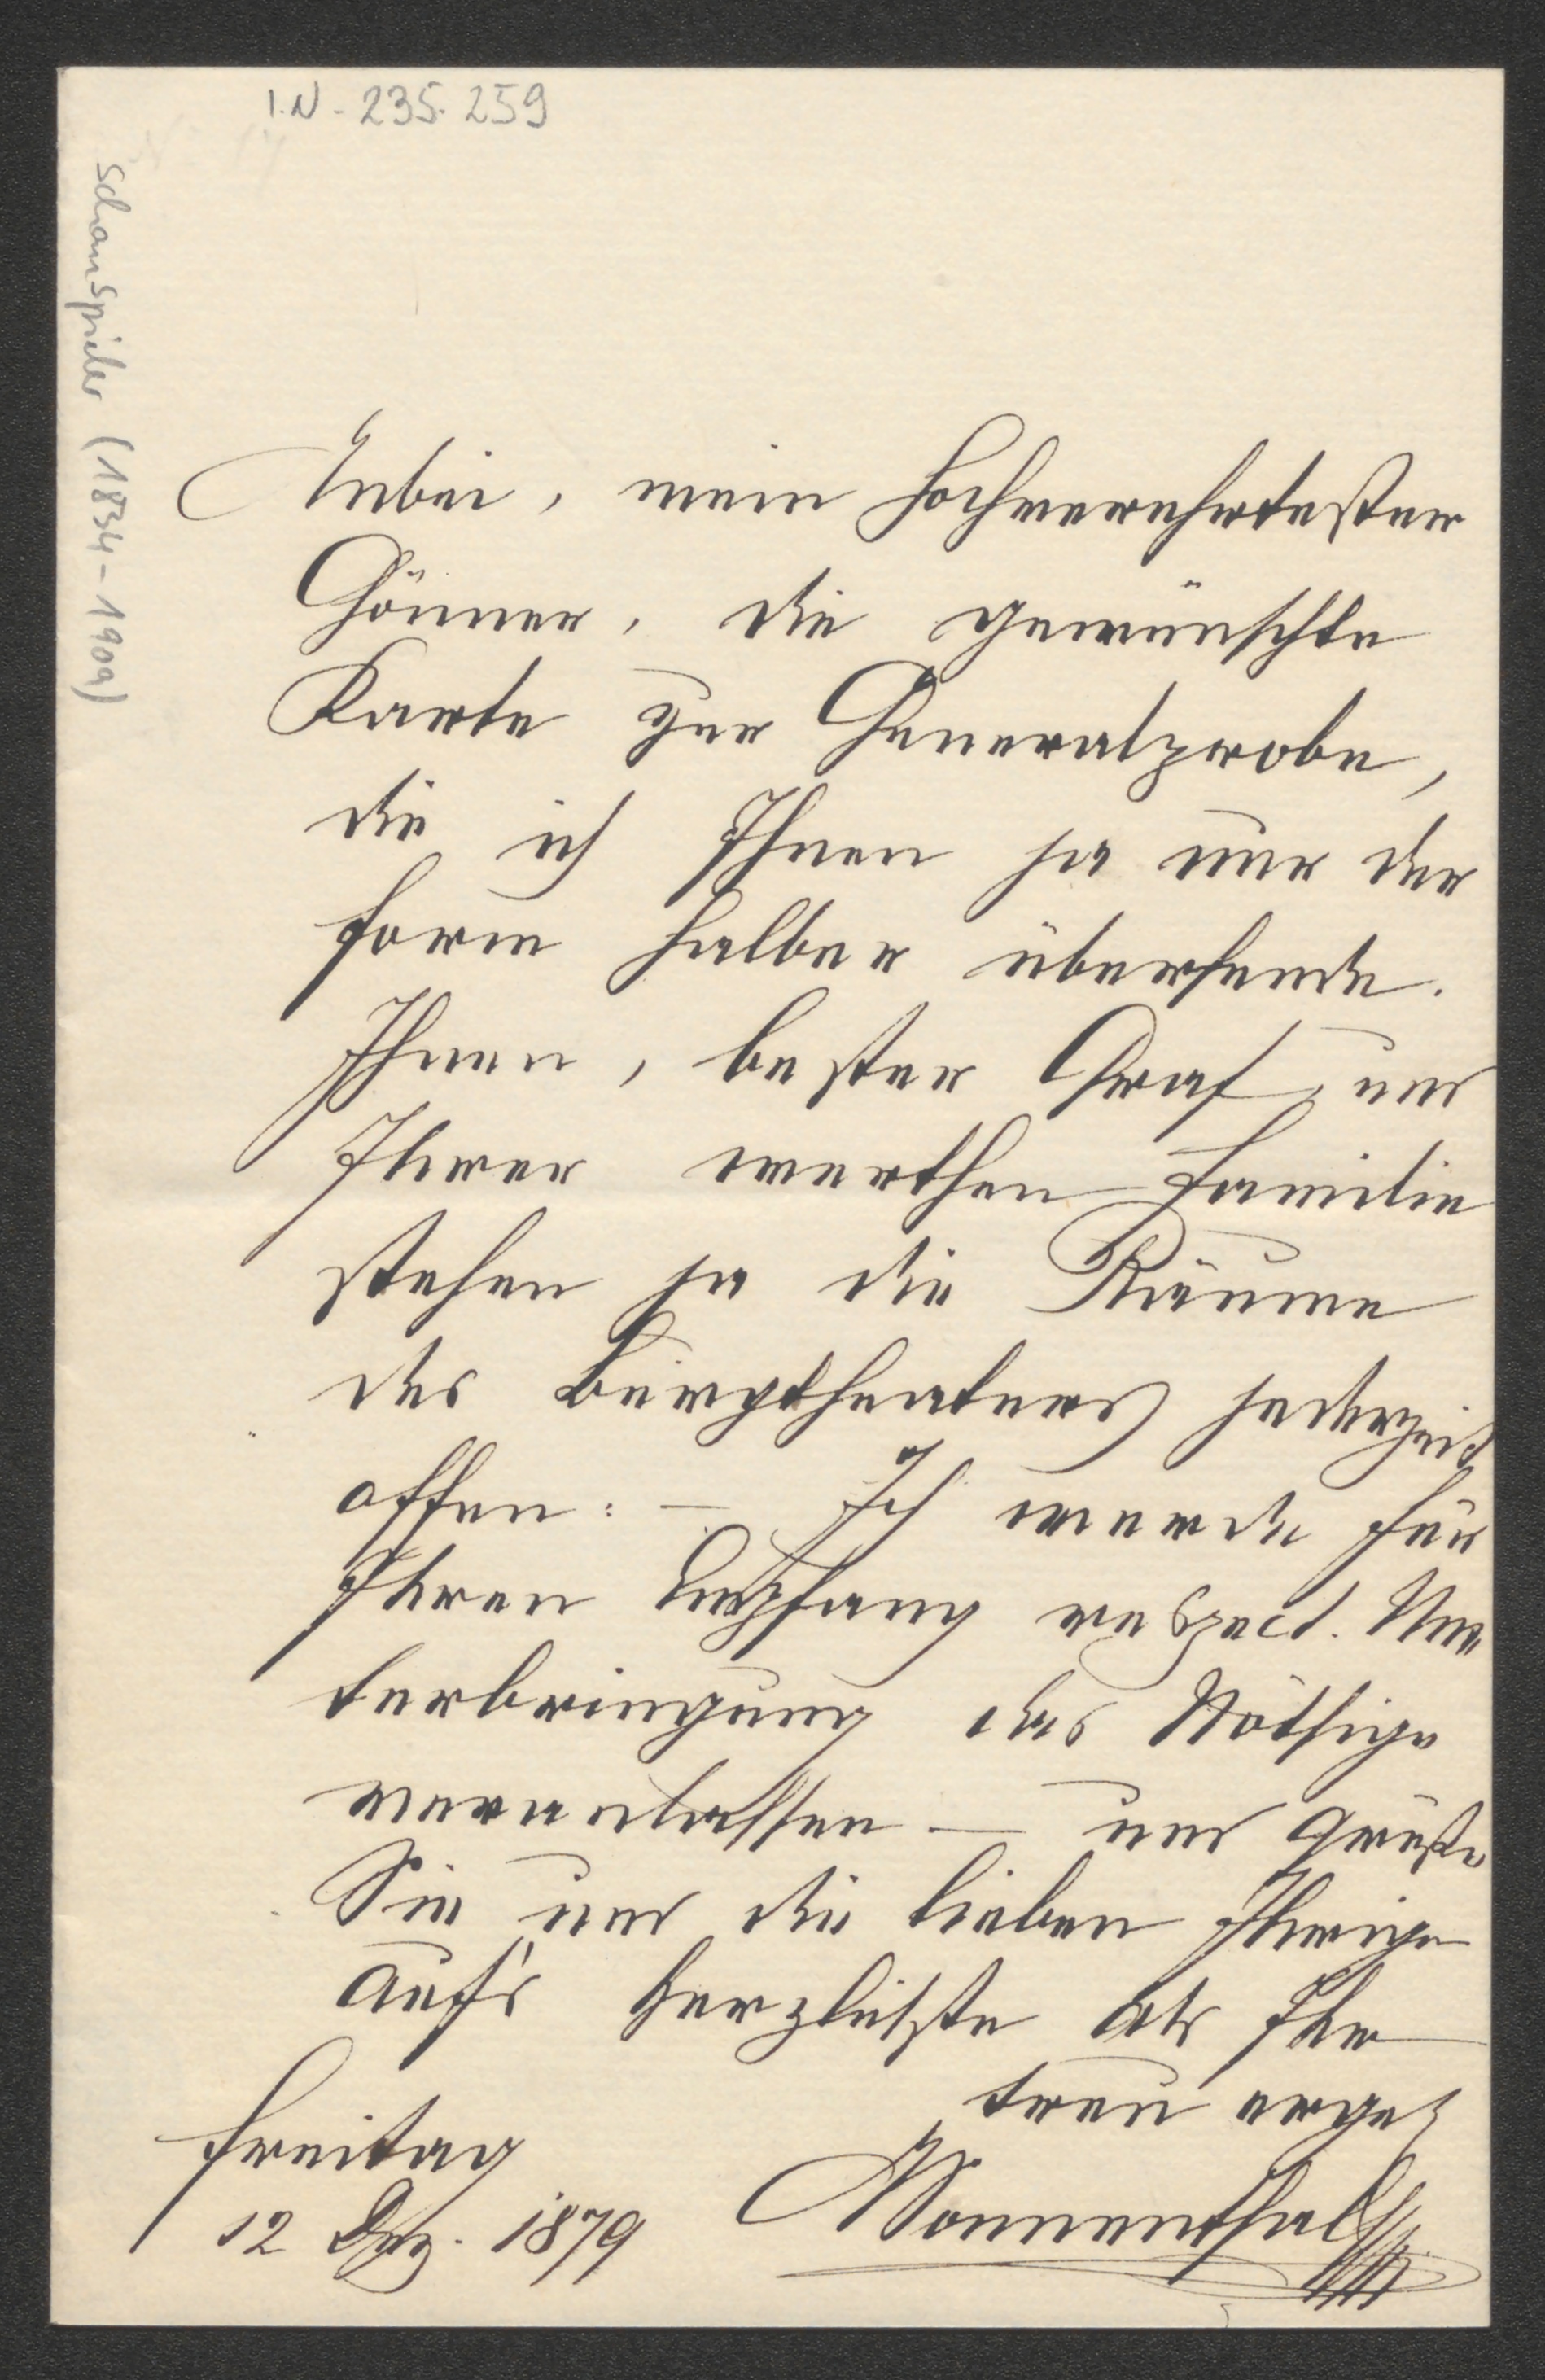 I.N - 235.259
Schauspieler (1834-1909)
Anbei, mein hochverehrtester
Gönner, die gewünschte
Karte zur Generalprobe,
die ich Ihnen ja nur der
Form halber übersende.
Ihnen, bester Graf, und
Ihrer werthen Familie
stehen ja die Räume
des Burgtheaters jederzeit
offen: – Ich werde für
Ihren Empfang respect. Un
terbringung das Nöthige
veranlassen – und grüße
Sie und die lieben Ihrigen
auf's herzlichste als Ihr
treu ergeb
Freitag
12 Dez. 1879
Sonnenthal